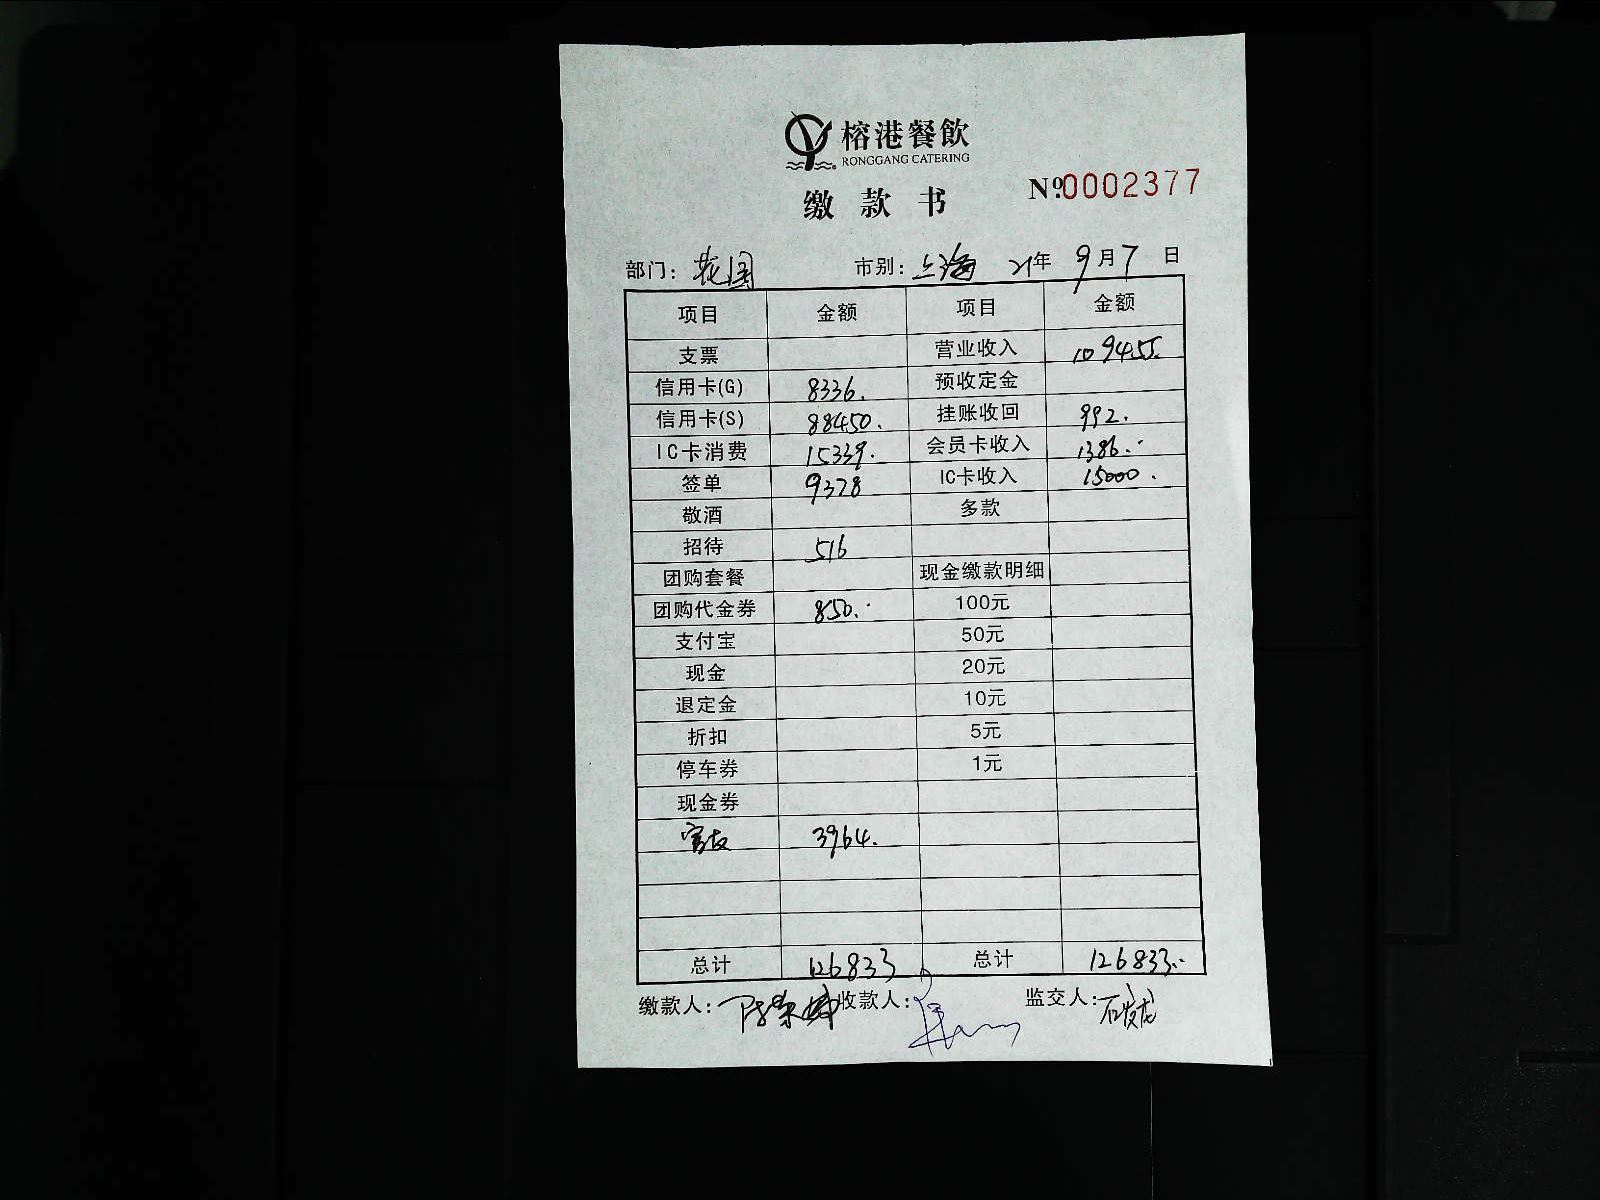 榕港餐飲
RONGGANG CATERING
缴款书
№0002377
部门：花园 市别：上海 21年9月7日
项目 金额 项目 金额
支票 营业收入 109455.
信用卡(G) 8336. 预收定金
信用卡(S) 88450. 挂账收回 992.
IC卡消费 15339. 会员卡收入 1386.
签单 9378 IC卡收入 15000.
敬酒 多款
招待 516
团购套餐 现金缴款明细
团购代金券 850. 100元
支付宝 50元
现金 20元
退定金 10元
折扣 5元
停车券 1元
现金券
3964.
总计 126833 总计 126833.
缴款人： 收款人： 监交人：石发龙